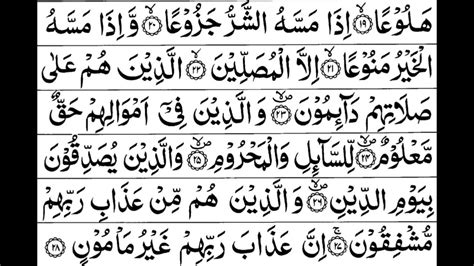 هَلُوۡعًا ۙ‏﴿۱۹﴾ اِذَا مَسَّهُ الشَّرُّ جَزُوۡعًا ۙ‏﴿۲۰﴾ وَّاِذَا مَسَّهُ
الۡخَيۡرُ مَنُوۡعًا ۙ‏﴿۲۱﴾ اِلَّا الۡمُصَلِّيۡنَ ۙ‏﴿۲۲﴾ الَّذِيۡنَ هُمۡ عَلٰى
صَلَاتِهِمۡ دَآٮِٕمُوۡنَ ۙ‏﴿۲۳﴾ وَالَّذِيۡنَ فِىۡۤ اَمۡوَالِهِمۡ حَقٌّ
مَّعۡلُوۡمٌ ۙ‏﴿۲۴﴾ لِّلسَّآٮِٕلِ وَالۡمَحۡرُوۡمِ ۙ‏﴿۲۵﴾ وَالَّذِيۡنَ يُصَدِّقُوۡنَ
بِيَوۡمِ الدِّيۡنِ ۙ‏﴿۲۶﴾ وَالَّذِيۡنَ هُمۡ مِّنۡ عَذَابِ رَبِّهِمۡ
مُّشۡفِقُوۡنَ ۚ‏﴿۲۷﴾ اِنَّ عَذَابَ رَبِّهِمۡ غَيۡرُ مَاۡمُوۡنٍ‏﴿۲۸﴾